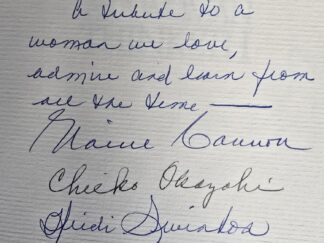 A tribute to a
woman we love,
admire and learn from
all the time —
Elaine Cannon
Chieko Okazaki
Heidi Swinton